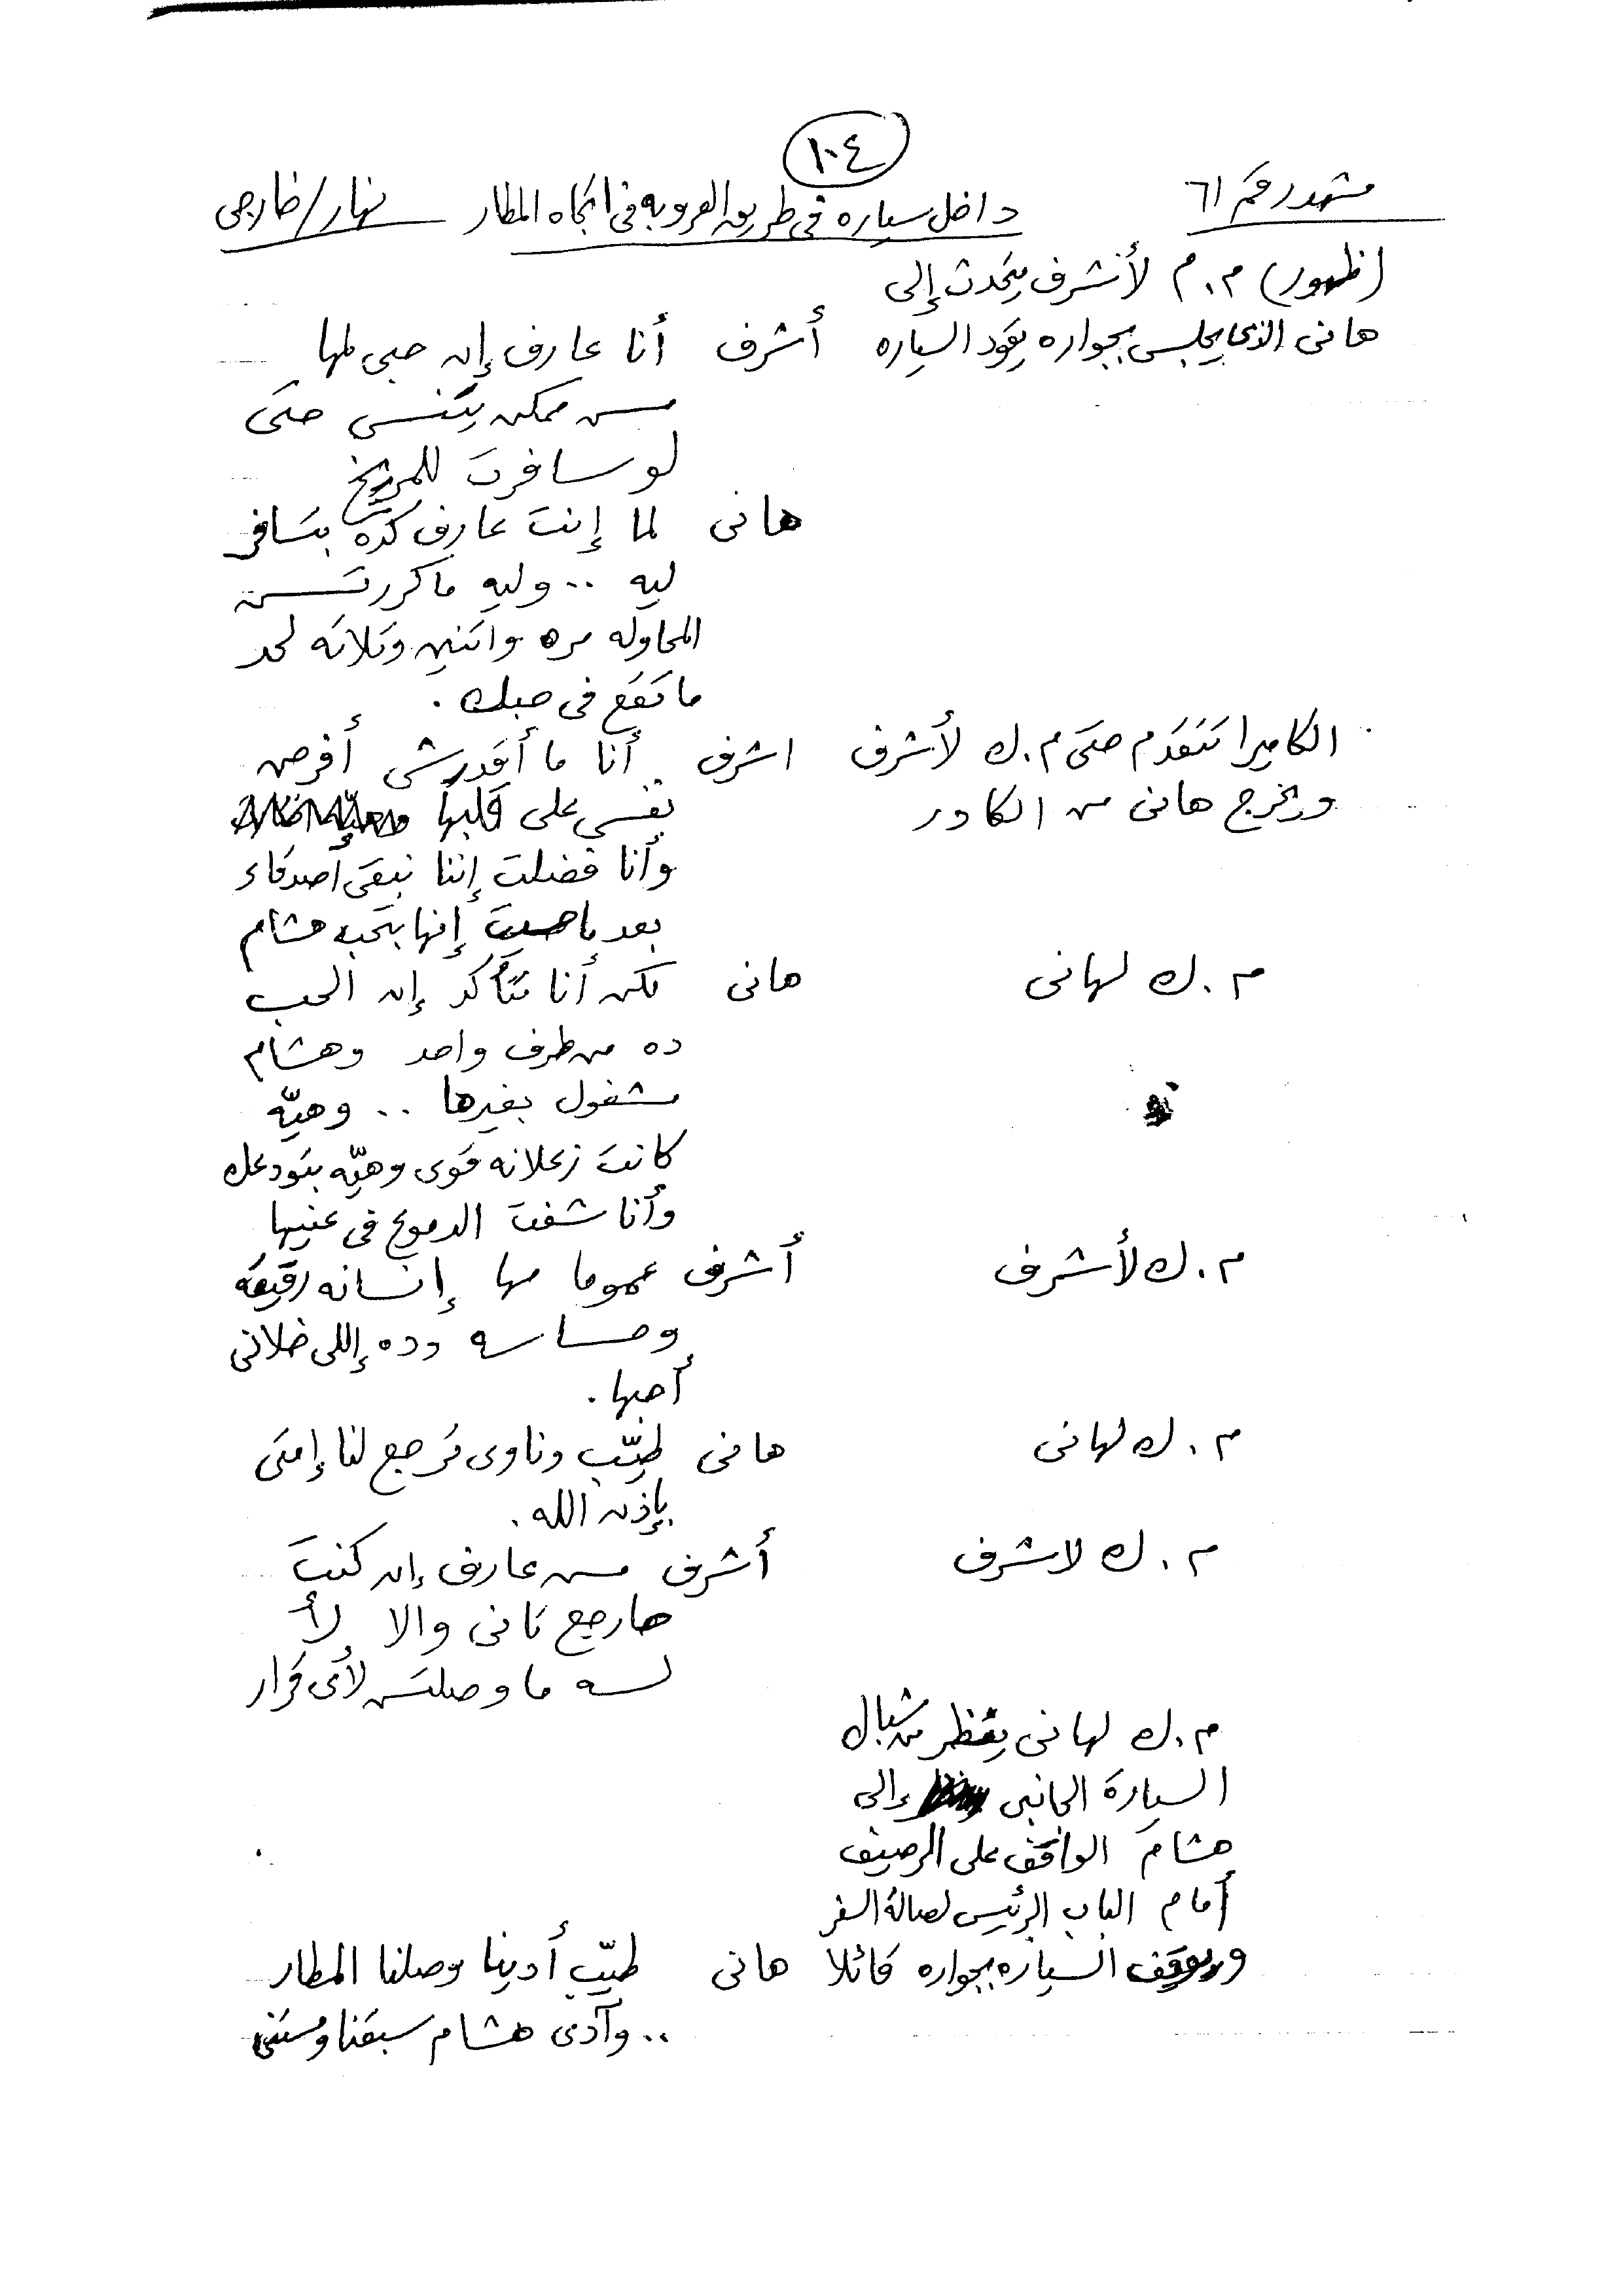 ١٠٤
مشهد رقم ٦١ داخل سياره فى طريق العروبه فى اتجاه المطار نهار/خارجى
(ظهور) م.م لأشرف يتحدث إلى
هانى الذى يجلس بجواره يقود السياره أشرف أنا عارف إن حبى لمها
مش ممكن يتنسى حتى
لو سافرت للمريخ
هانى لما إنت عارف كده بتسافر
ليه .. وليه ما كررتش
المحاوله مره واتنين وتلاته لحد
ما تقع فى حبك .
الكاميرا تتقدم حتى م.ك لأشرف اشرف أنا ما أقدرش أفرض
ويخرج هانى من الكادر نفسي على قلبها
وأنا فضلت إننا نبقى أصدقاء
بعد ما حسيت إنها بتحب هشام
م.ك لهانى هانى لكن أنا متأكد إن الحب
ده من طرف واحد وهشام
مشغول بغيرها .. وهيّه
كانت زعلانه قوى وهيّه بتودعك
وأنا شفت الدموع فى عنيها
م.ك لأشرف أشرف عموما مها إنسانه رقيقه
وحساسه وده إللى خلانى
أحبها .
م.ك لهانى هانى طيّب وناوى ترجع لنا إمتى
بإذن الله .
م.ك لاشرف أشرف مش عارف إن كنت
هارجع تانى والا لأ
لسه ما وصلتش لأى قرار
م.ك لهانى ينظر من شباك
السيارة الجانبى إلى
هشام الواقف على الرصيف
أمام الباب الرئيس لصالة السفر
ويوقف السياره بجواره قائلا هانى طيّب أدينا وصلنا المطار
.. وآدى هشام سبقنا ومستنى